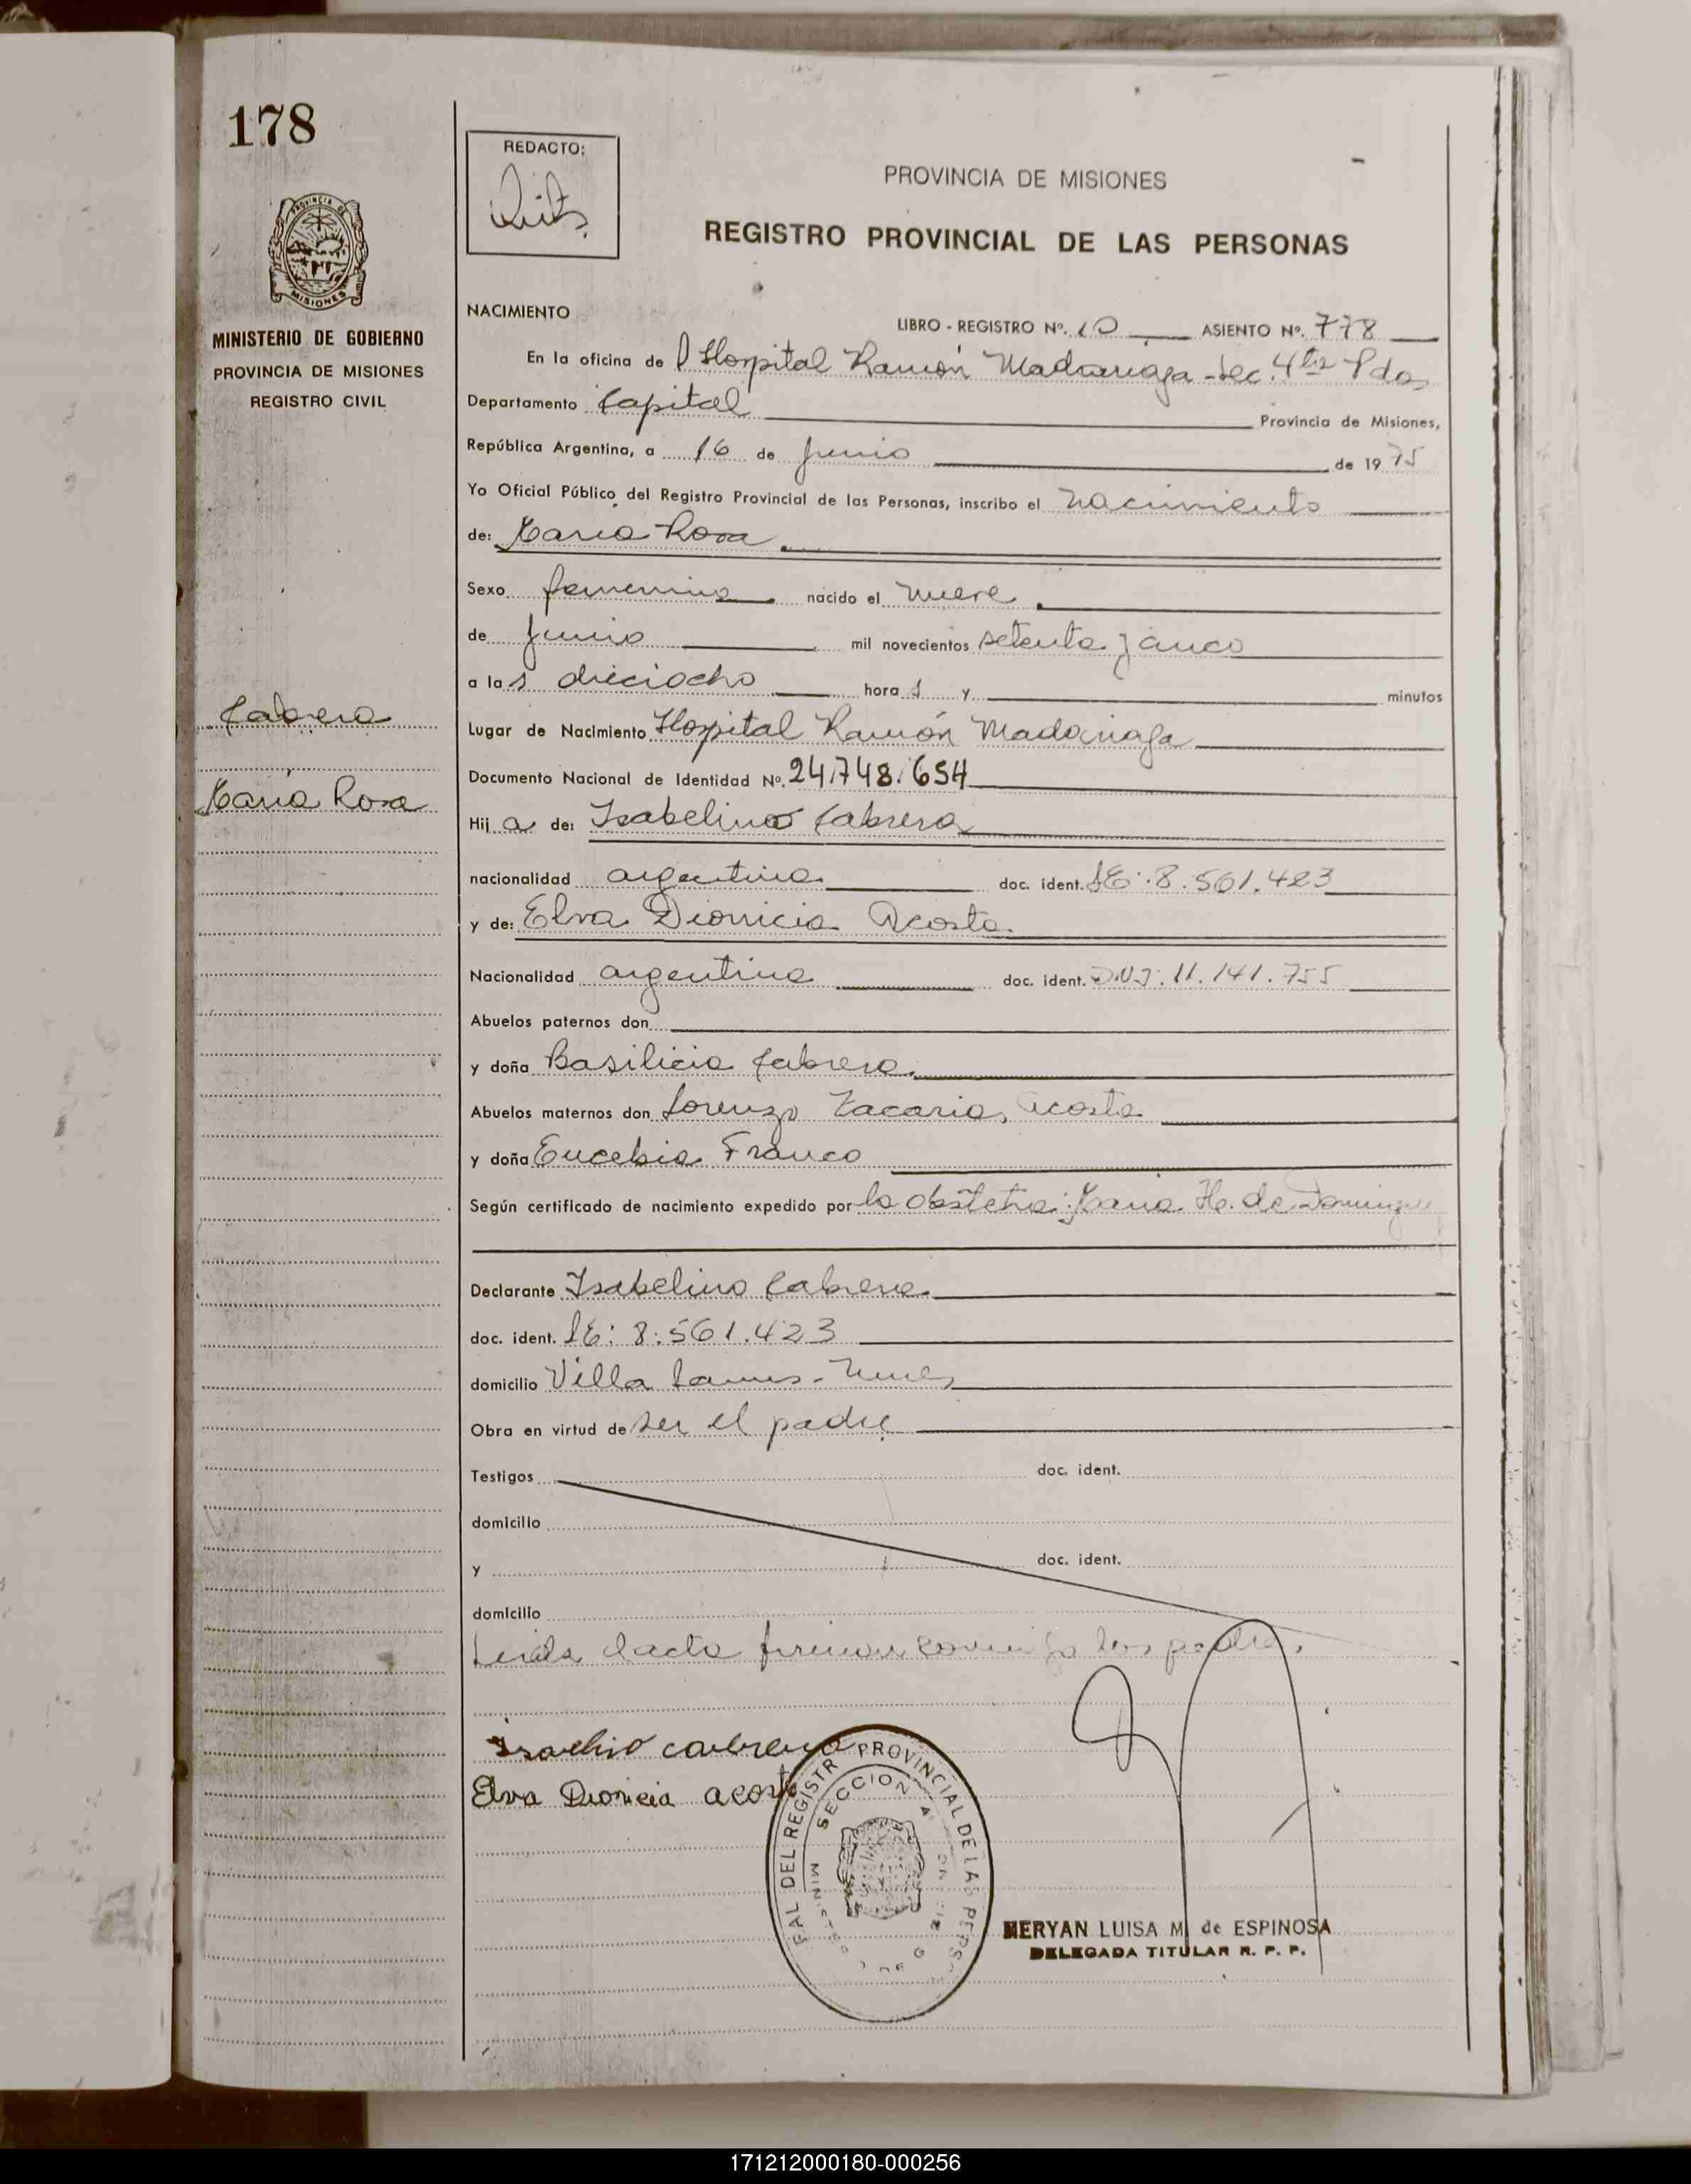 178
REDACTO:
PROVINCIA DE MISIONES
REGISTRO PROVINCIAL DE LAS PERSONAS
PROVINCIA DE
MISIONES
MINISTERIO DE GOBIERNO
PROVINCIA DE MISIONES
REGISTRO CIVIL
NACIMIENTO
LIBRO - REGISTRO Nº. 10 ASIENTO Nº. 778
En la oficina de l Hospital Ramón Madariaga - Sec. 4ta Pdas
Departamento Capital Provincia de Misiones,
República Argentina, a 16 de junio de 1975
Yo Oficial Público del Registro Provincial de las Personas, inscribo el nacimiento
de: María Rosa
Sexo femenino nacido el nueve
de junio mil novecientos setenta y cinco
a las dieciocho horas y minutos
Cabrera
Lugar de Nacimiento Hospital Ramón Madariaga
Documento Nacional de Identidad Nº. 24.748.654
María Rosa
Hija de: Isabelino Cabrera
nacionalidad argentina doc. ident. LE: 8.561.423
y de: Elva Dionicia Acosta
Nacionalidad argentina doc. ident. DNI: 11.141.755
Abuelos paternos don
y doña Basilicia Cabrera
Abuelos maternos don Lorenzo Zacarias Acosta
y doña Eucebia Franco
Según certificado de nacimiento expedido por la obstetra: María H. de Dominguez
Declarante Isabelino Cabrera
doc. ident. LE: 8.561.423
domicilio Villa Lanus -
Obra en virtud de ser el padre
Testigos doc. ident.
domicilio
y doc. ident.
domicilio
Leída el acta firman conmigo los padres
cabrera
Elva Dionicia acosta
REGISTR PROVINCIAL DE LAS PERS
SECCION 4
MERYAN LUISA M. de ESPINOSA
DELEGADA TITULAR R. P. P.
171212000180-000256